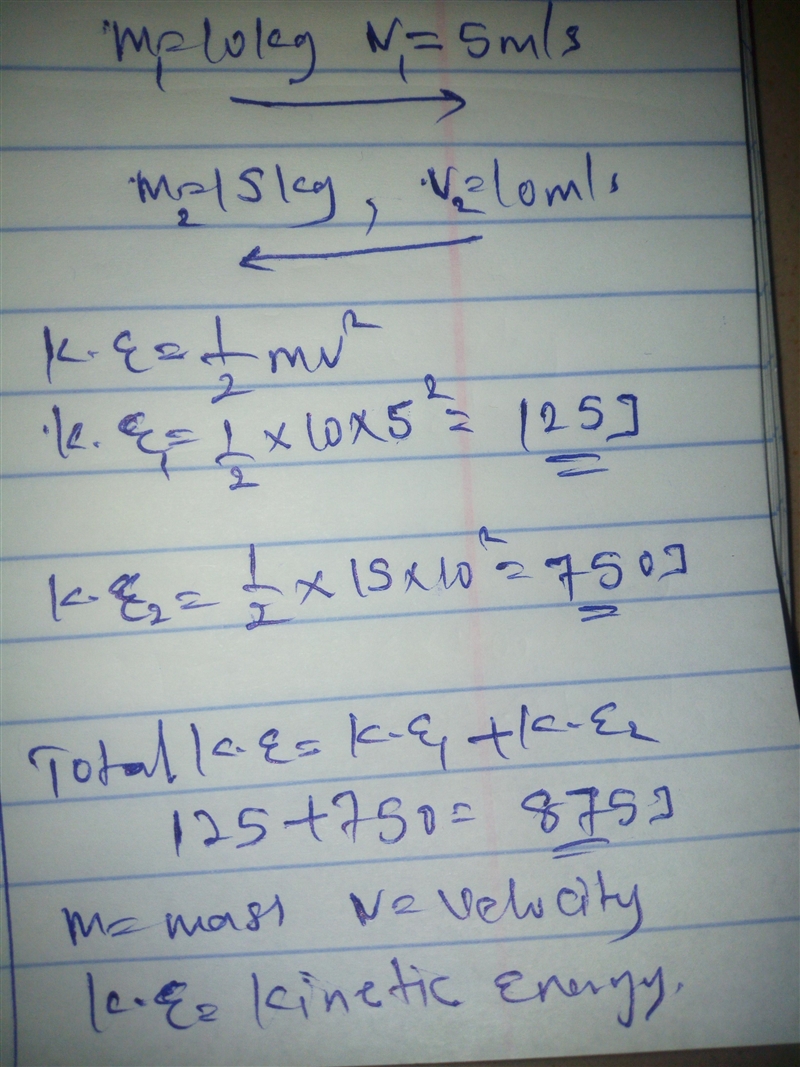 m₁=10kg V₁=5m/s
m₂=15kg, V₂=10m/s
K.E=1/2 mv²
K.E₁=1/2×10×5²= 125J
K.E₂=1/2×15×10²=750J
Total K.E=K.E₁+K.E₂
125+750=875J
M=mass V=Velocity
K.E=Kinetic Energy.